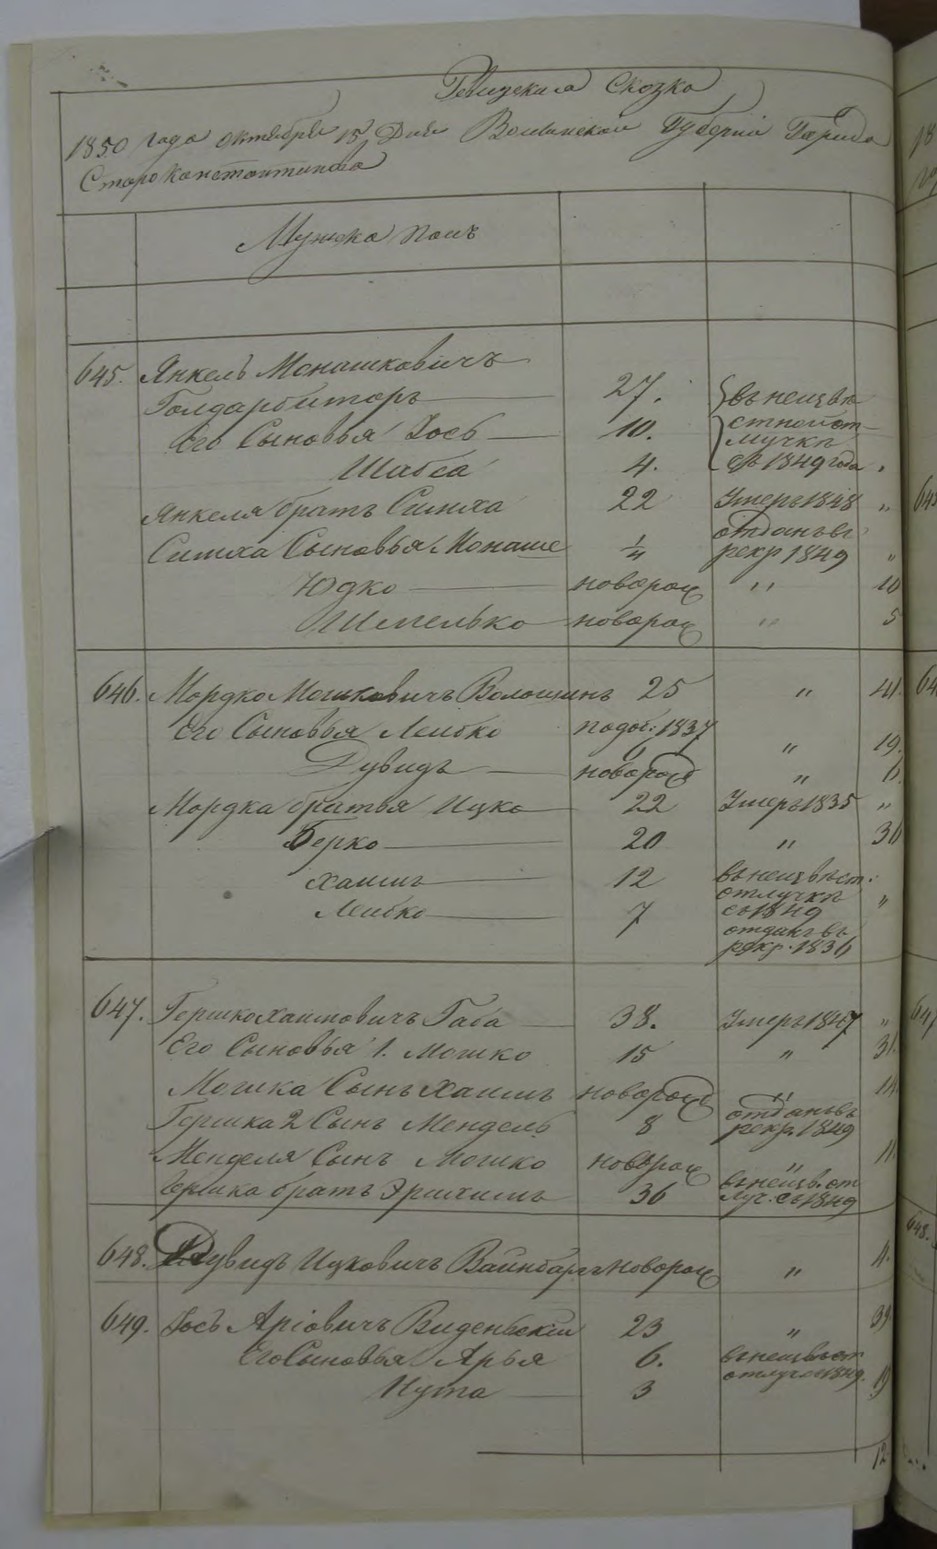 Ревизская Сказка
1850 года октября 15 Дня Волынской Губернии Города
Староконстантинова
Мужска полъ
645. Янкель Монашковичъ
Голдарбитеръ 27. въ неизвѣ
стной от
Его Сыновья Іось 10. лучки
Шабса 4. съ 1849 года "
Янкеля братъ Симха 22 Умеръ 1848 "
отданъ въ
Симха Сыновья Монаше 1/4 рекр 1849 "
Юдко новорож " 10
Шмелько новорож " 5
646. Мордко Мошковичъ Волошинъ 25 " 41.
Его Сыновья Лейбко подоб: 1837 " 19.
Дувидъ новорож "
Мордка братья Ицко 22 Умеръ 1835 "
Берко 20 " 36
Хаимъ 12 въ неизвѣст.
отлучкѣ
съ 1849 "
Лейбко 7 отданъ въ
рекр. 1836
647. Гершко Хаимовичъ Габа 38. Умеръ 1847 "
Его Сыновья 1. Мошко 15 " 31.
Мошка Сынъ Хаимъ новорож " 14.
Гершка 2 Сынъ Мендель 8 отданъ въ
рекр. 1849
Менделя Сынъ Мошко новорож " 11.
Гершка братъ Эршхимъ 36 въ неизв. от
луч. съ 1849
648. Дувидъ Ицковичъ Вайнбаргъ новорож " 4.
649. Іось Аріовичъ Виденьскій 23 " 39
Его Сыновья Арья 6. въ неизвѣст
отлуч съ 1849.
Нута 3 19
12